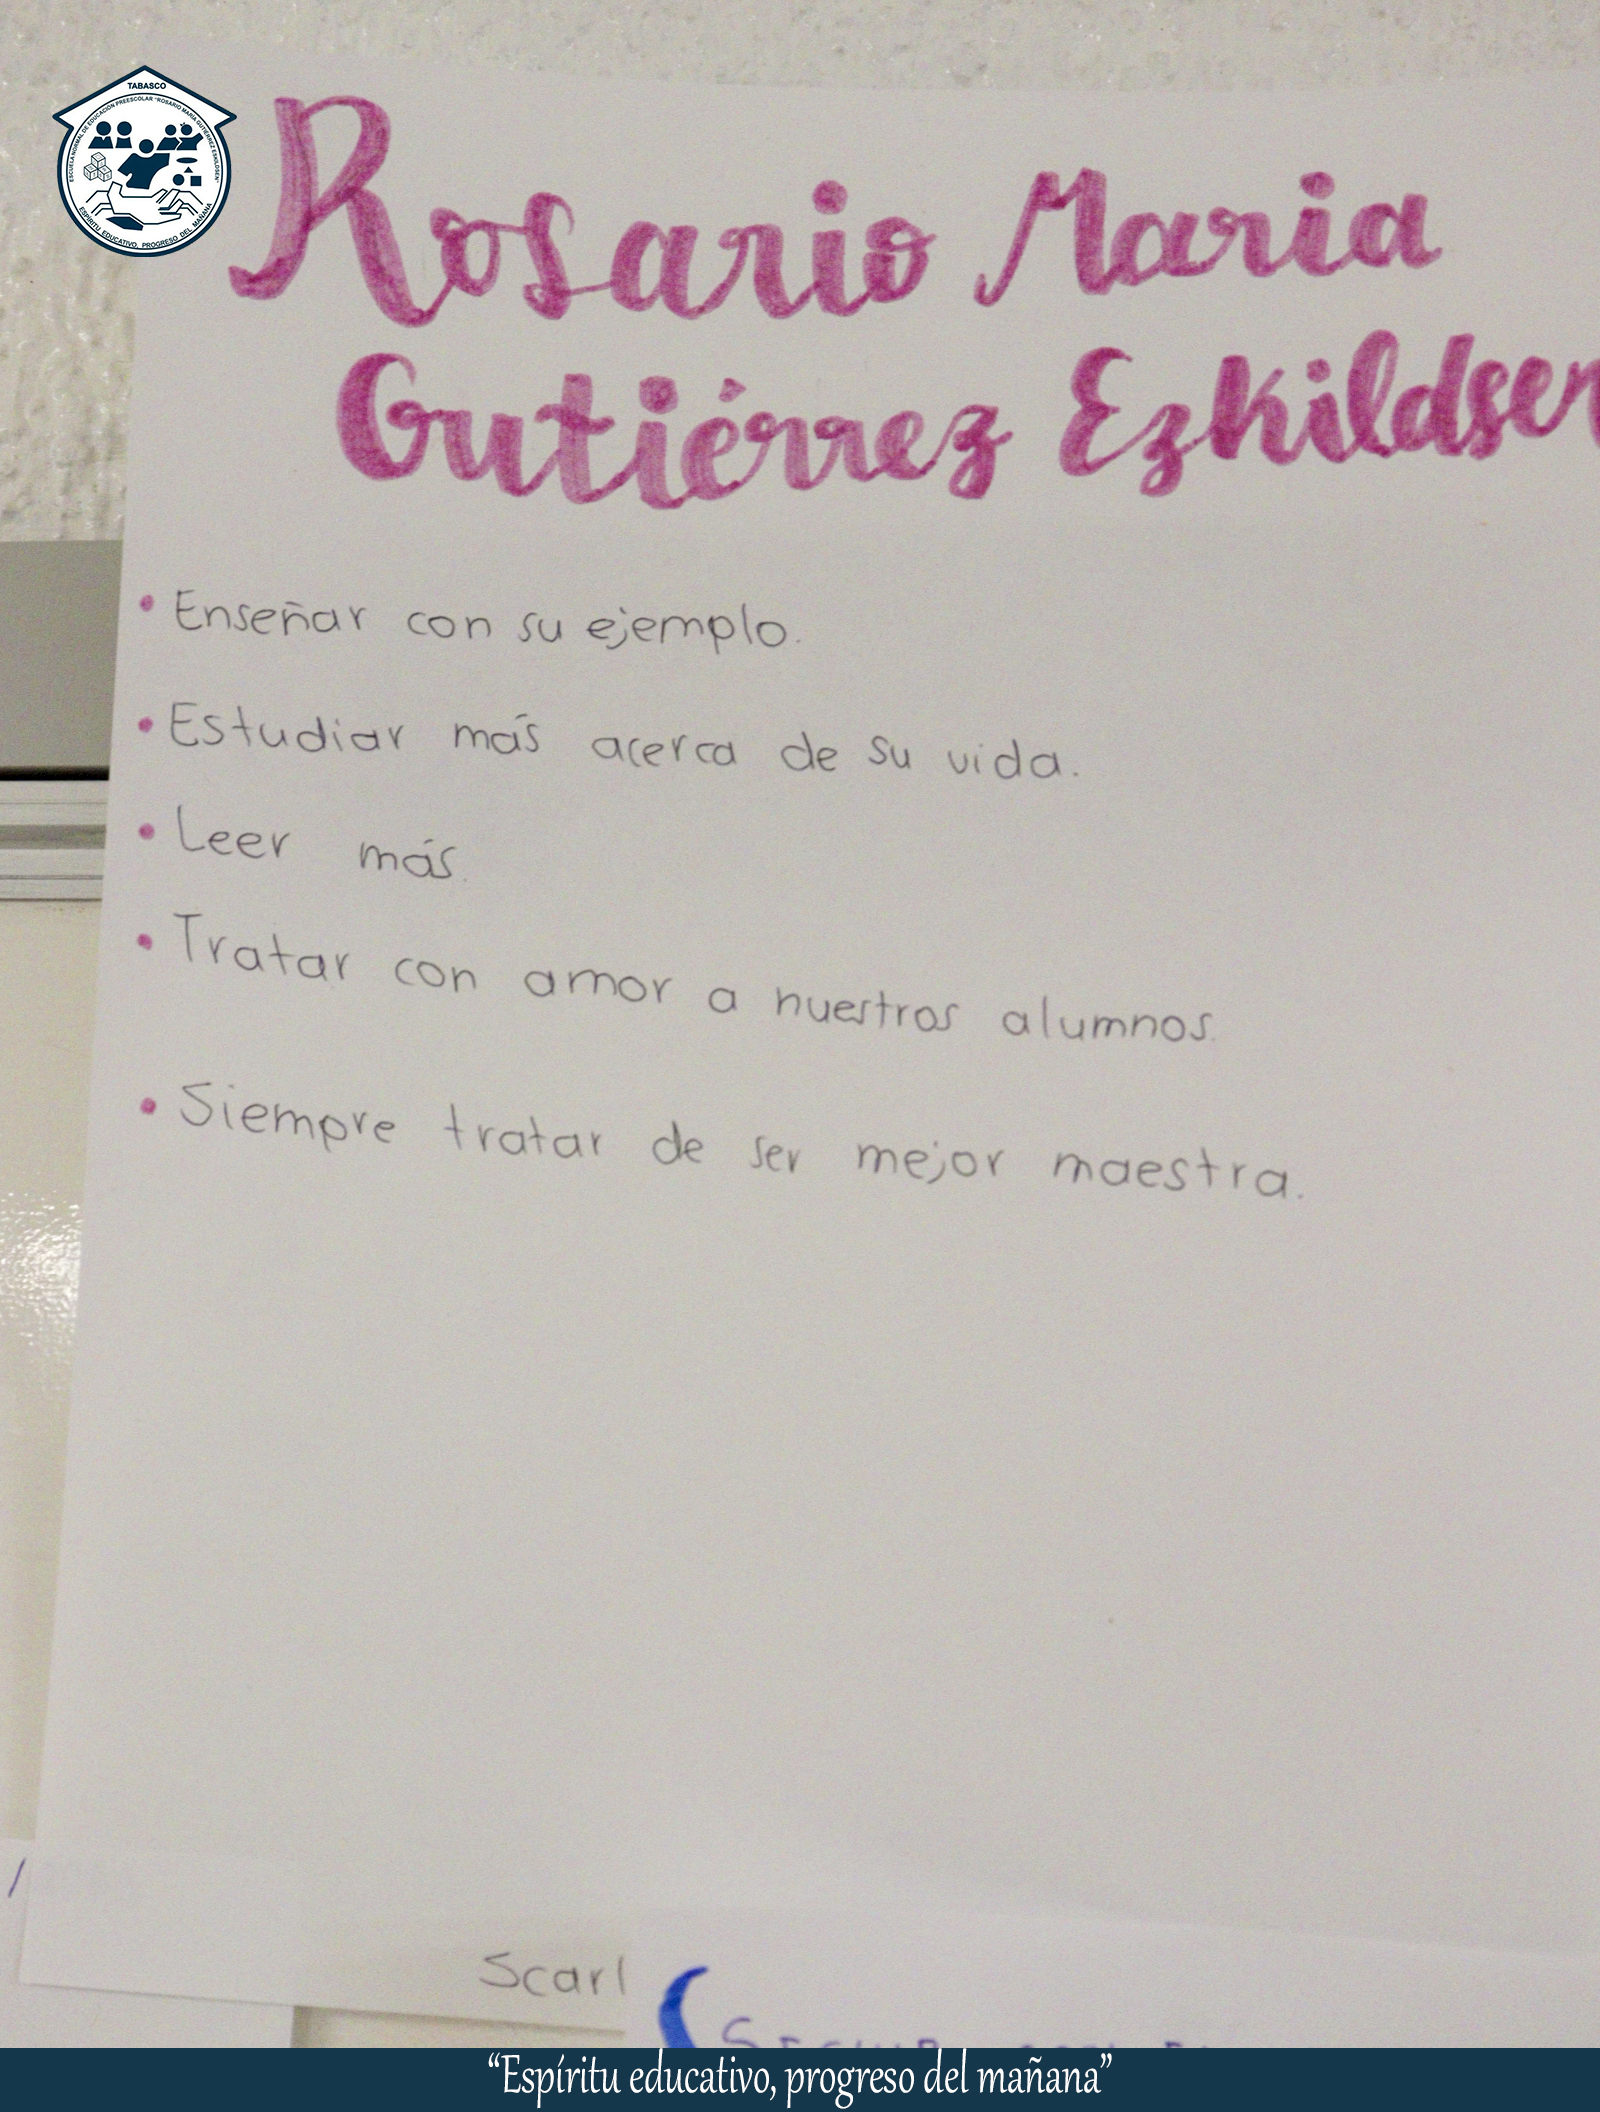 TABASCO
ESCUELA NORMAL DE EDUCACIÓN PREESCOLAR "ROSARIO MARÍA GUTIÉRREZ ESKILDSEN"
ESPÍRITU EDUCATIVO, PROGRESO DEL MAÑANA
Rosario Maria
Gutiérrez Ezkildsen
• Enseñar con su ejemplo.
• Estudiar más acerca de su vida.
• Leer más.
• Tratar con amor a nuestros alumnos.
• Siempre tratar de ser mejor maestra.
Scarl
“Espíritu educativo, progreso del mañana”